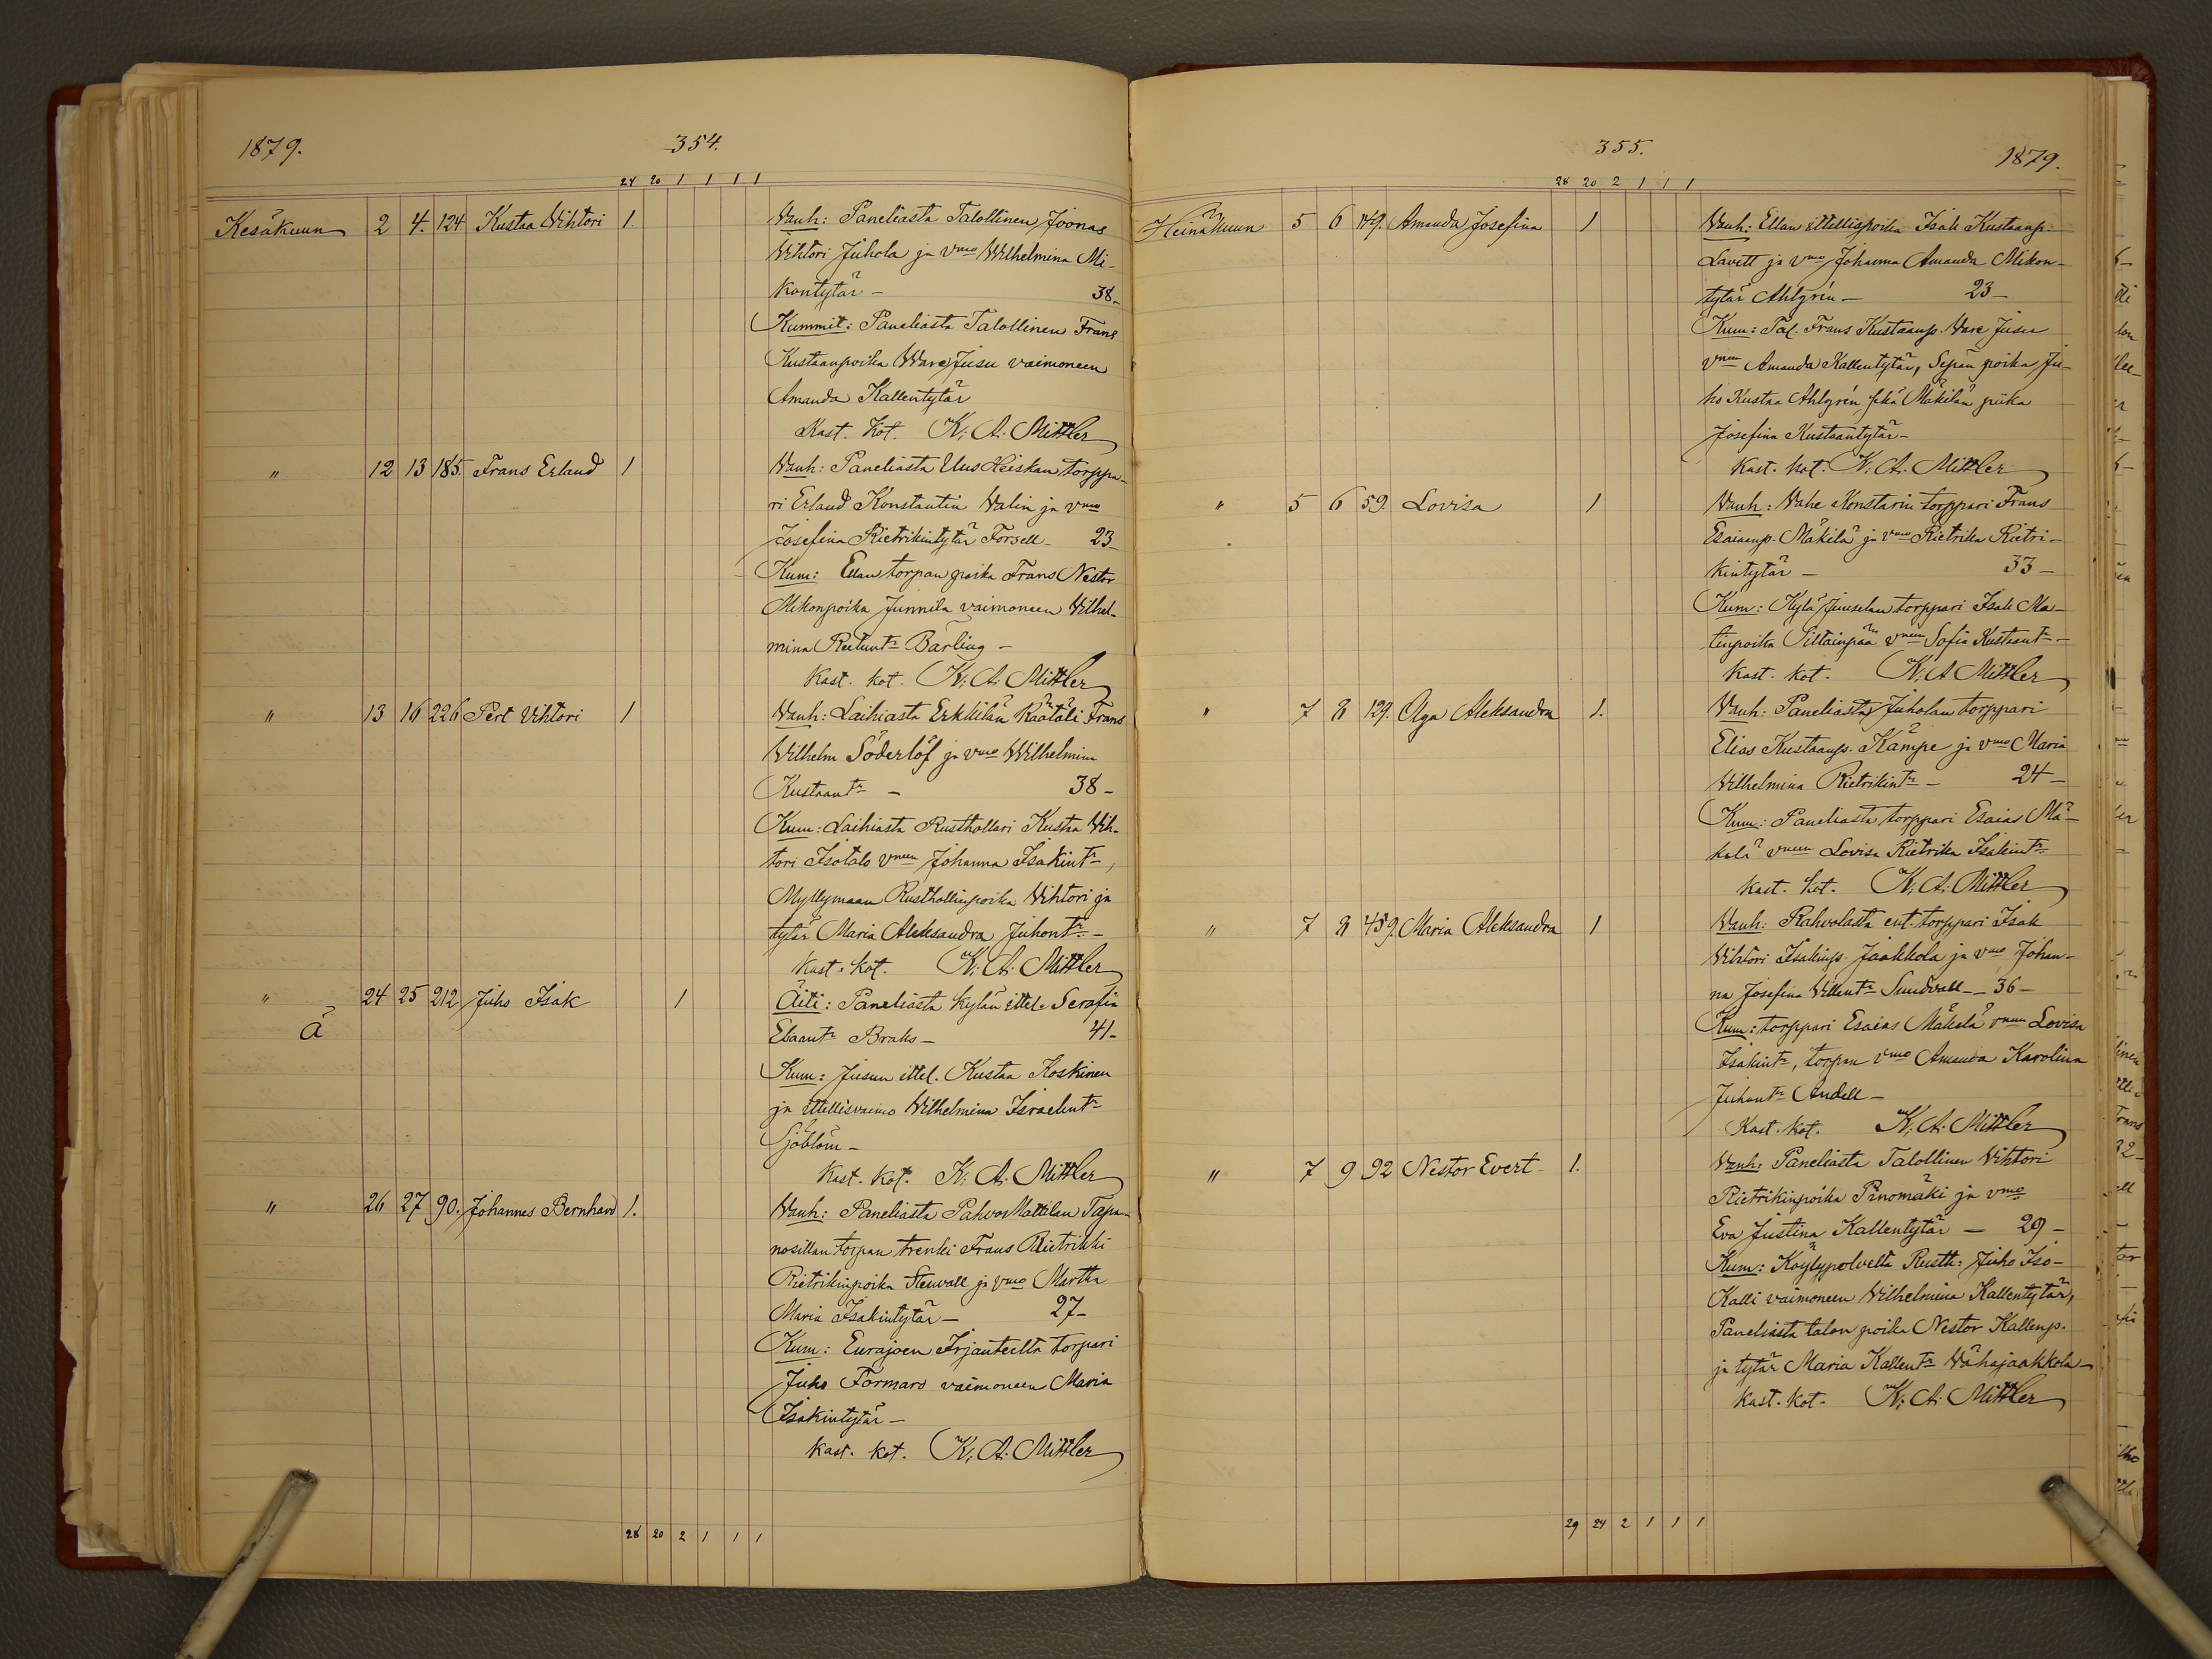 1879.
354.
24 20 1 1 1 1
Kesäkuun 2 4. 124. Kustaa Wihtori 1. Vanh: Paneliasta Talollinen Joonas
Wihtori Juhola ja vmo Wilhelmina Mi-
kontytär — 38-
Kummit: Paneliasta Talollinen Frans
Kustaanpoika Ware Jusu vaimoneen
Amanda Kallentytär
Kast. Kot. K. A. Mittler
" 12 13 185. Frans Erland 1 Vanh: Paneliasta Uus Heiskan torppa-
ri Erland Konstantin Walin ja vmo
Josefina Rietrikintytär Forsell - 23-
Kum: Ellan torpan poika Frans Nestor
Mikonpoika Junnila vaimoneen Vilhel-
mina Bärling -
Kast. kot. K. A. Mittler
" 13 16 226 Pert Vihtori 1 Vanh: Laihiasta Erkkilän Räätäli Frans
Wilhelm Söderlöf ja vmo Wilhelmina
Kustaantr - 38-
Kum: Laihiasta Rusthollari Kustaa Wih-
tori Isotalo vmneen Johanna Isakintr,
Myllymaan Rusthollinpoika Vihtori ja
tytär Maria Aleksandra Juhontr. -
Kast. Kot. K. A. Mittler
" 24 25 212 Juho Isak 1 Äiti: Paneliasta Kylän ittel. Serafia
Ä Eliaantr Braks - 41-
Kum: Jusun ittel. Kustaa Koskinen
ja ittellisvaimo Vilhelmina Israelintr
Sjöblöm -
Kast. Kot. K. A. Mittler
" 26 27 90. Johannes Bernhard 1. Vanh: Paneliasta Pahvo Mattilan Tapa-
nosillan torpan trenki Frans Rietrikki
Rietrikinpoika Stenvall ja vmo Martta
Maria Isakintytär - 27-
Kum: Eurajoen Irjanteelta torpari
Juho Formars vaimoneen Maria
Isakintytär -
Kast. kot. K. A. Mittler
28 20 2 1 1 1
355.
1879.
28 20 2 1 1 1
Heinäkuun 5 6 149. Amanda Josefina 1 Vanh: Ellan ittellispoika Isak Kustaanp.
Lavitt ja vmo Johanna Amanda Mikon-
tytär Ahlgrén - 23-
Kum: Tal. Frans Kustaanp. Ware Jusu
vmneen Amanda Kallentytär, Sepän poika Ju-
ho Kustaa Ahlgrén sekä Mäkilän piika
Josefina Kustaantytär -
Kast. kot. K. A. Mittler
" 5 6 59. Lovisa 1 Vanh: Vähe Konstarin torppari Frans
Esaianp. Mäkilä ja vmo Rietrika Rietri-
kintytär - 33-
Kum: Kylä Juuselan torppari Isak Ma-
tinpoika Siltainpää vmneen Sofia Kustaantr -
Kast. kot. K. A Mittler
" 7 8 129. Olga Aleksandra 1. Vanh: Paneliasta Juholan torppari
Elias Kustaanp. Kämpe ja vmo Maria
Vilhelmina Rietrikintr - 24-
Kum: Paneliasta torppari Esaias Mä-
kelä vmneen Lovisa Rietrika Isakintr
Kast. kot. K. A. Mittler
" 7 8 459. Maria Aleksandra 1 Vanh: Rahvolasta ent. torppari Isak
Vihtori Isakinp. Jaakkola ja vmo Johan-
na Josefina Villentr Sundvall - 36-
Kum: torppari Esaias Mäkelä vmneen Lovisa
Isakintr, torpan vmo Amanda Karolina
Juhontr Andell -
Kast. Kot. K. A. Mittler
" 7 9 92 Nestor Evert 1. Vanh: Paneliasta Talollinen Vihtori
Rietrikinpoika Pinomäki ja vmo
Eva Justina Kallentytär - 29-
Kum: Köylypolvelta Rusth: Juho Iso-
Kalli vaimoneen Vilhelmina Kallentytär,
Paneliasta talon poika Nestor Kallenp.
ja tytär Maria Kallentr Vähäjaakkola -
Kast. kot. K. A. Mittler
29 24 2 1 1 1